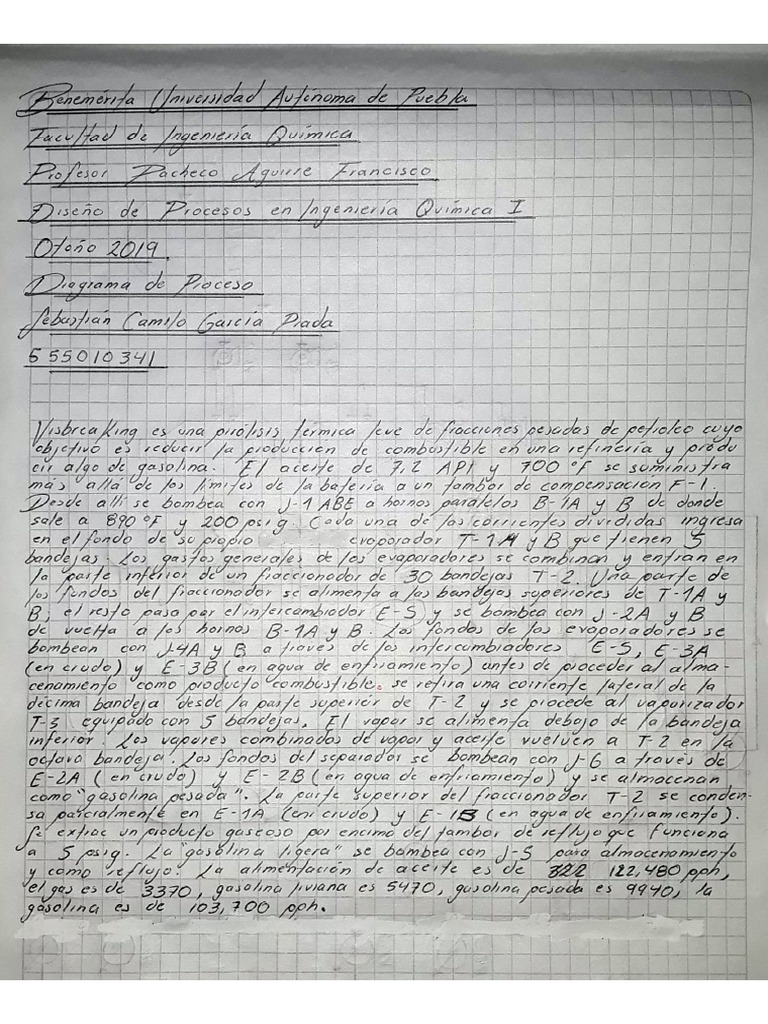 Benemérita Universidad Autónoma de Puebla
Facultad de Ingeniería Química
Profesor Pacheco Aguirre Francisco
Diseño de Procesos en Ingeniería Química I
Otoño 2019.
Diagrama de Proceso
Sebastián Camilo García Prada
555010341
Visbreaking es una pirólisis térmica leve de fracciones pesadas de petróleo cuyo
objetivo es reducir la producción de combustible en una refinería y produ
cir algo de gasolina. El aceite de 7.2 API y 700 °F se suministra
más allá de los límites de la batería a un tambor de compensación F-1.
Desde allí se bombea con J-1 ABE a hornos paralelos B-1A y B de donde
sale a 890 °F y 200 psig. Cada una de las corrientes divididas ingresa
en el fondo de su propio evaporador T-1A y B que tienen 5
bandejas. Los gastos generales de los evaporadores se combinan y entran en
la parte inferior de un fraccionador de 30 bandejas T-2. Una parte de
los fondos del fraccionador se alimenta a las bandejas superiores de T-1A y
B; el resto pasa por el intercambiador E-5 y se bombea con J-2A y B
de vuelta a los hornos B-1A y B. Los fondos de los evaporadores se
bombean con J-4A y B a través de los intercambiadores E-5, E-3A
(en crudo) y E-3B (en agua de enfriamiento) antes de proceder al alma-
cenamiento como producto combustible. se retira una corriente lateral de la
décima bandeja desde la parte superior de T-2 y se procede al vaporizador
T-3 equipado con 5 bandejas. El vapor se alimenta debajo de la bandeja
inferior. Los vapores combinados de vapor y aceite vuelven a T-2 en la
octava bandeja. Los fondos del separador se bombean con J-6 a través de
E-2A (en crudo) y E-2B (en agua de enfriamiento) y se almacenan
como "gasolina pesada". La parte superior del fraccionador T-2 se conden-
sa parcialmente en E-1A (en crudo) y E-1B (en agua de enfriamiento).
Se extrae un producto gaseoso por encima del tambor de reflujo que funciona
a 5 psig. La "gasolina ligera" se bombea con J-5 para almacenamiento
y como reflujo. La alimentación de aceite es de 122,480 pph,
el gas es de 3370, gasolina liviana es 5470, gasolina pesada es 9940, la
gasolina es de 103,700 pph.